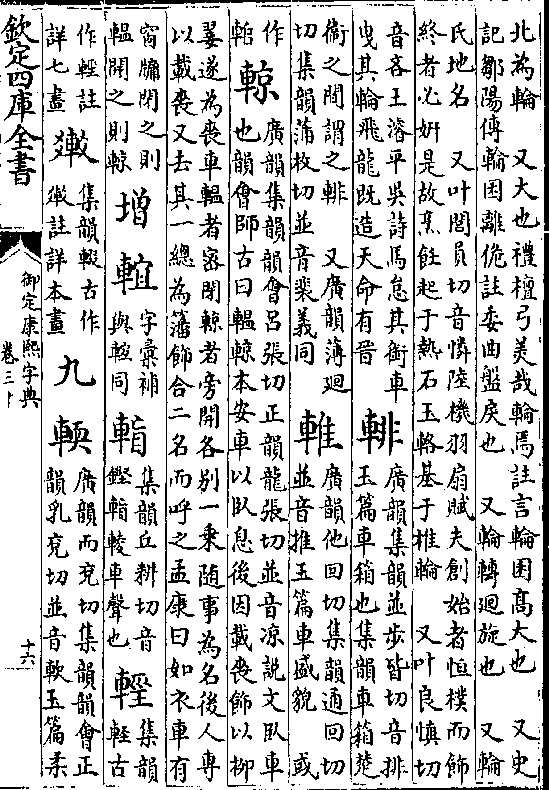 北為輪　又大也禮檀弓美哉輪焉註言輪囷髙大也　又史
記鄒陽傳輪囷離佹註委曲盤戾也　又輪轉迴旋也　又輪
氏地名　又叶閭員切音憐陸機羽扇賦夫創始者恒樸而飾
終者必姸是故烹飪起于熱石玉輅基于椎輪　又叶良慎切
音吝王濬平吳詩馬怠其銜車
曳其輪飛龍既造天命有晉
輫
廣韻集韻並步皆切音排
玉篇車箱也集韻車箱楚
衛之間謂之輫　又廣韻薄廻
切集韻蒲枚切並音裴義同
䡔
廣韻他回切集韻通回切
並音推玉篇車盛貌　或
作
䡓
輬
廣韻集韻韻會呂張切正韻龍張切並音凉說文臥車
也韻會師古曰轀輬本安車以臥息後因載喪飾以柳
翣遂為喪車轀者密閉輬者旁開各別一乘隨事為名後人專
以載喪又去其一總為藩飾合二名而呼之孟康曰如衣車有
窗牖閉之則
轀開之則輬
增
䡖
字彙補
與䡖同
䡗
集韻丘耕切音
鏗䡗輘車聲也
輕
集韻
輕古
作輕註
詳七畫
集韻輟古作
註詳本畫
九
輭
廣韻而兖切集韻韻會正
韻乳兖切並音軟玉篇柔
欽定四庫全書
御定康熙字典
卷三十
十六